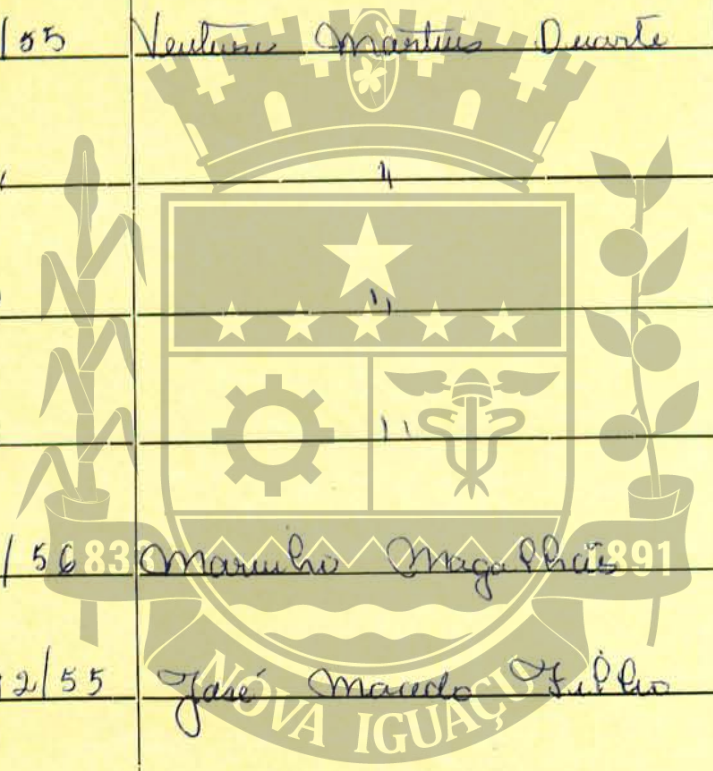 /55 Ventura Martins Duarte
" "
" "
"
/56 Marinho Magalhães
2/55 José Macedo Filho
1833 1891
NOVA IGUAÇU